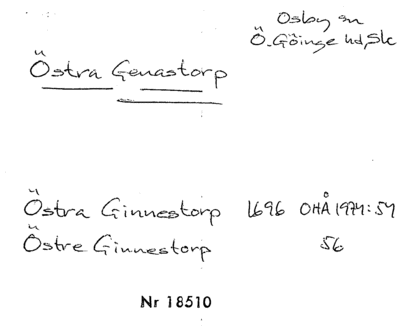 Osby sn
Ö. Göinge hd, Slc
Östra Genastorp
Östra Ginnestorp 1696 OHÅ 1974:54
Östre Ginnestorp 56
Nr 18510